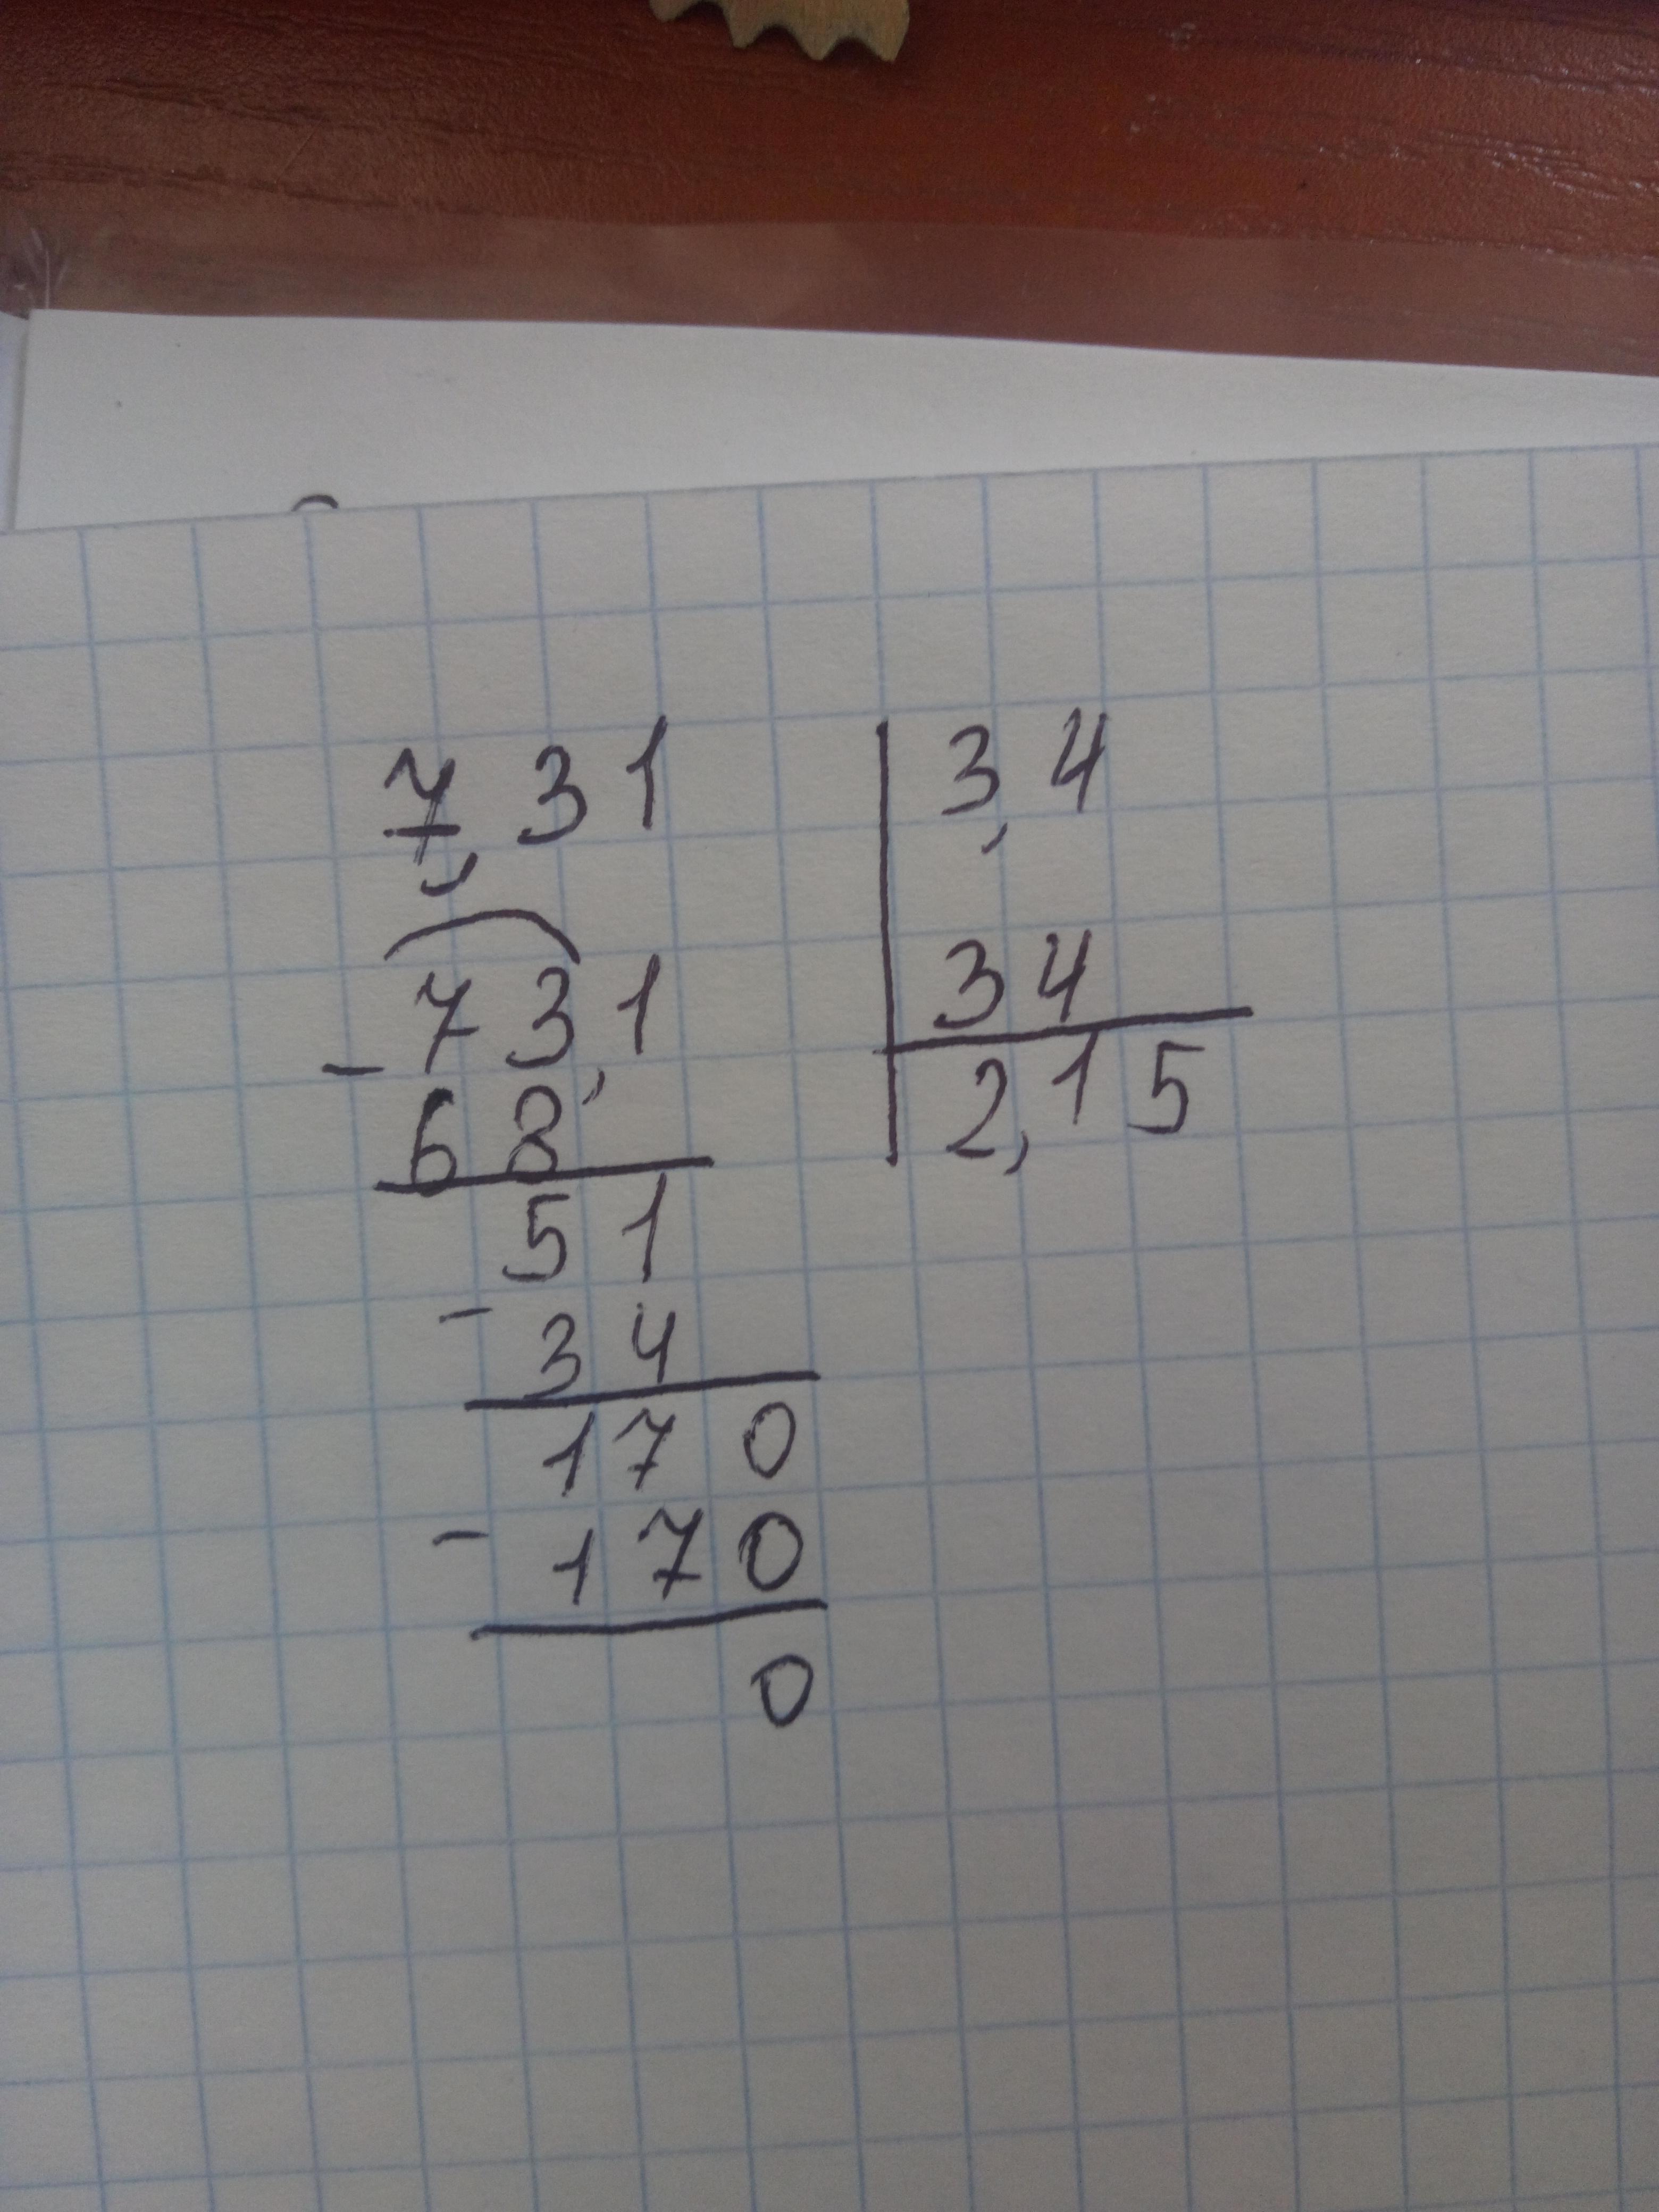 7,31 3,4
73,1 34
- 68 2,15
51
- 34
170
- 170
0